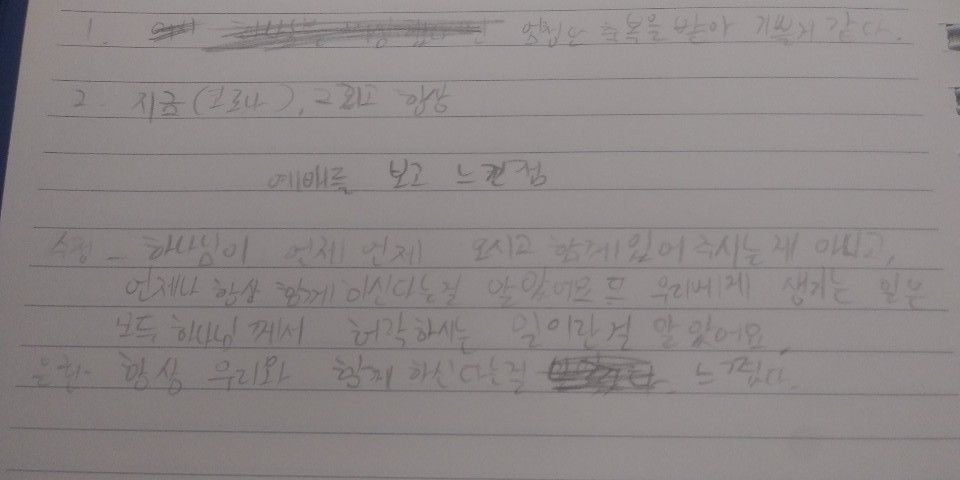 1. 엄청난 축복을 받아 기쁠거 같다.
2. 지금(코로나), 그리고 항상
예배를 보고 느낀점
수정 - 하나님이 언제 언제 오시고 함께 있어 주시는게 아니고,
언제나 항상 함께 이신다는걸 알았어요 또 우리에게 생기는 일은
모두 하나님께서 허락하시는 일이란걸 알았어요
은환- 항상 우리와 함께하신다는걸 느꼈다.